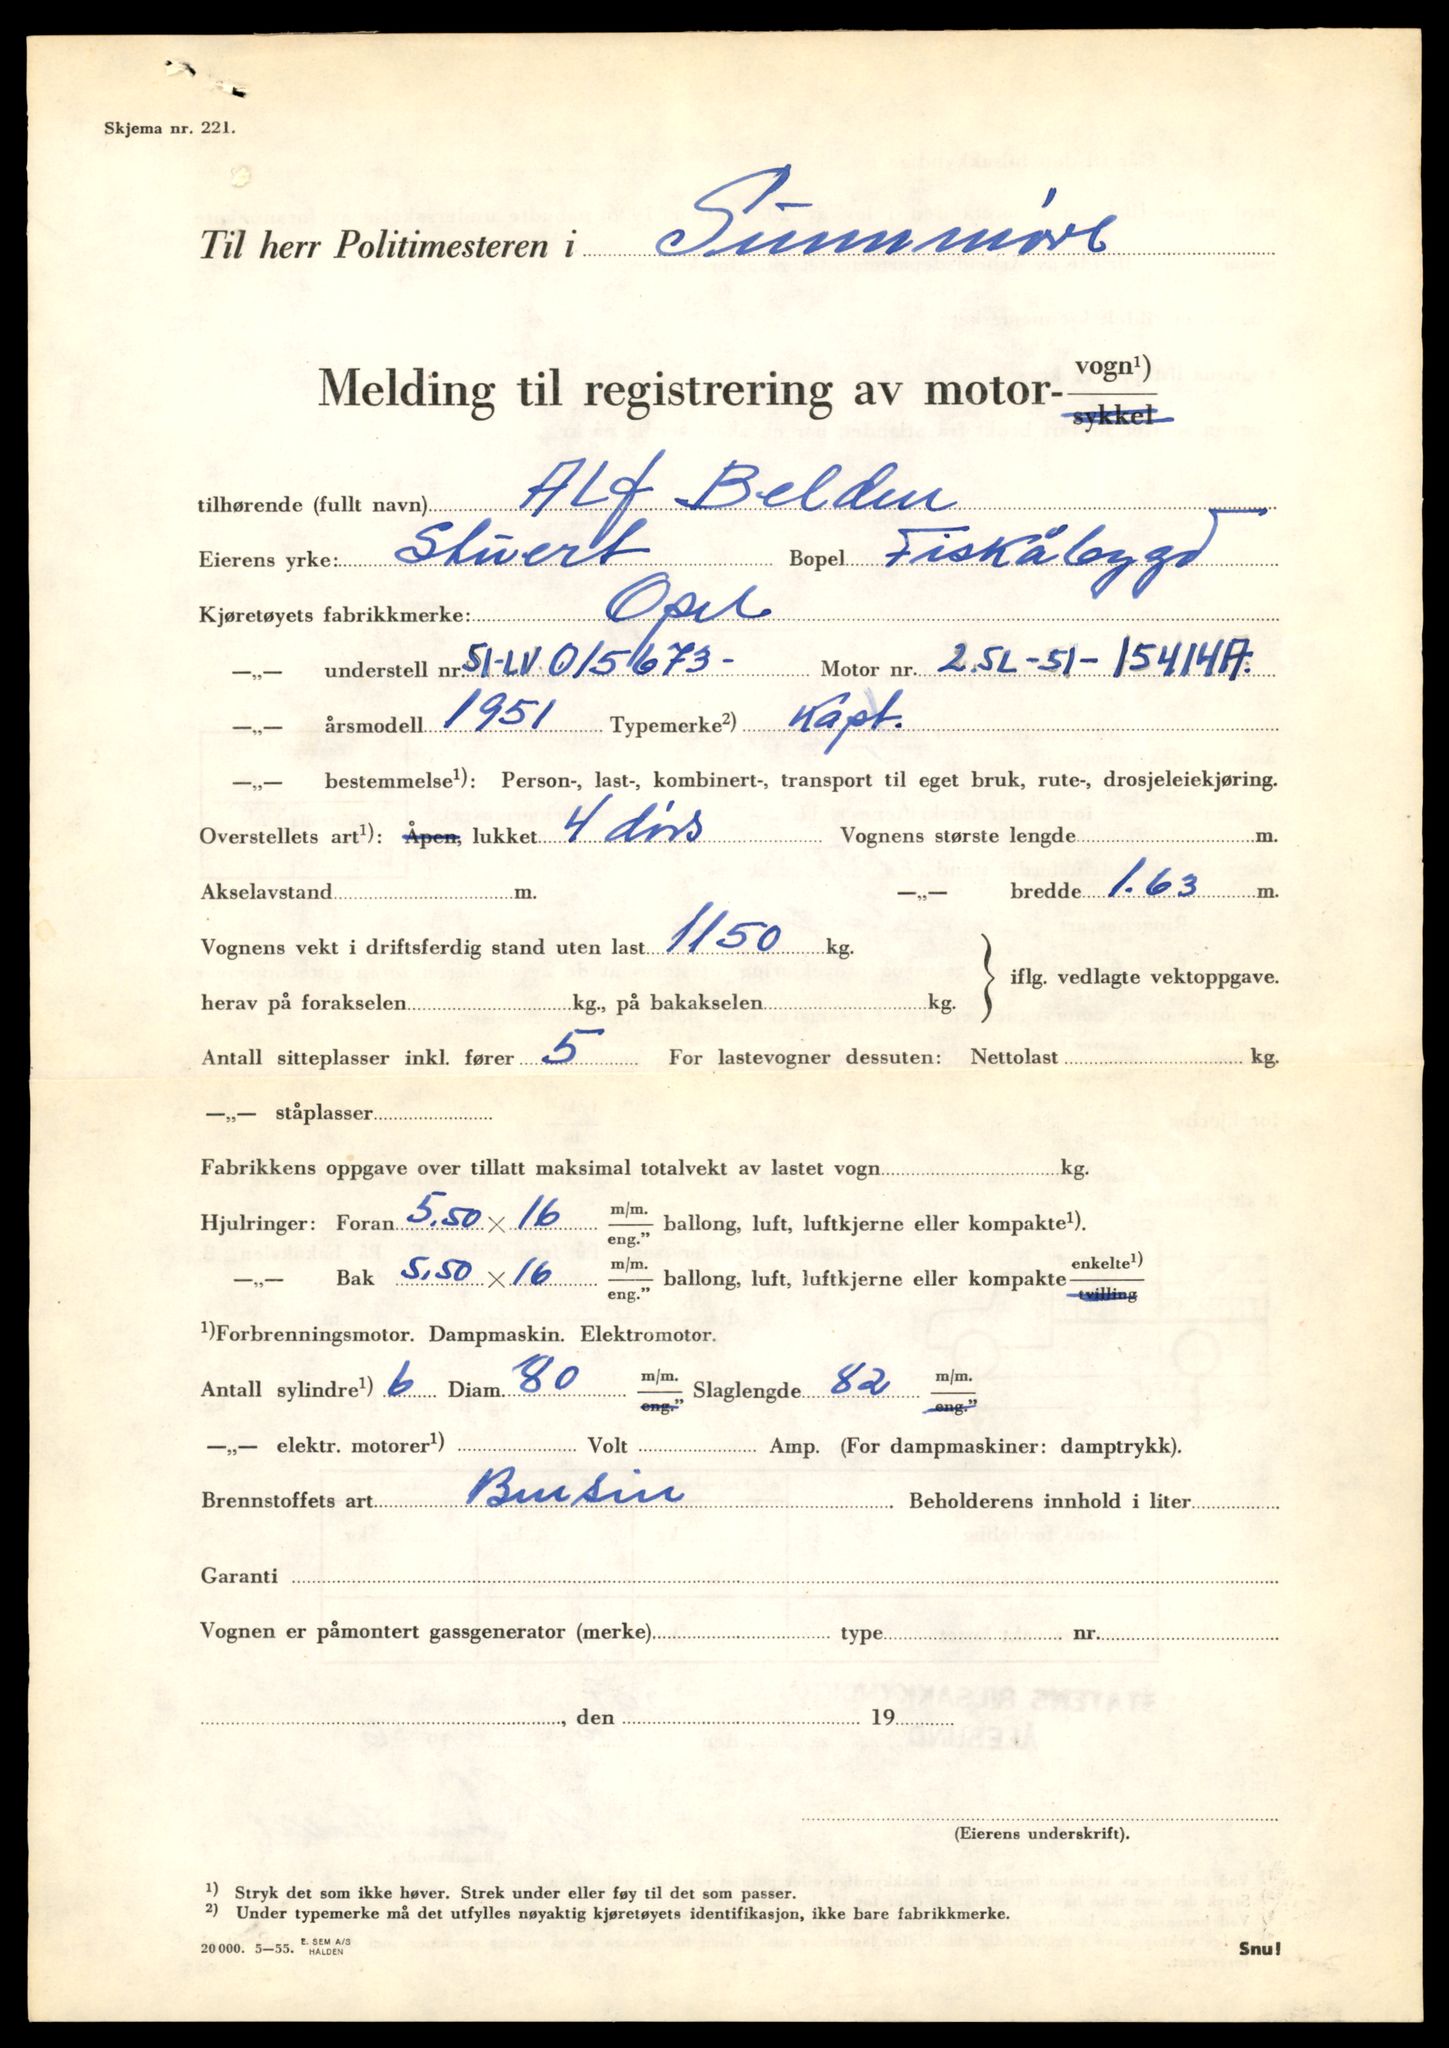 Skjema nr. 221.
Til herr Politimesteren i Sunnmöre
Melding til registrering av motor- vogn¹)
sykkel
tilhørende (fullt navn) Alf Belden
Eierens yrke: Stuert Bopel Fiskåbygd
Kjøretøyets fabrikkmerke: Opel
—„— understell nr. 51-LV 015673- Motor nr. 2.5L-51-15414A.
—„— årsmodell 1951 Typemerke²) Kapt.
—„— bestemmelse¹): Person-, last-, kombinert-, transport til eget bruk, rute-, drosjeleiekjøring.
Overstellets art¹): Åpen, lukket 4 dørs Vognens største lengde m.
Akselavstand m. —„— bredde 1.63 m.
Vognens vekt i driftsferdig stand uten last 1150 kg.
herav på forakselen kg., på bakakselen kg. } iflg. vedlagte vektoppgave.
Antall sitteplasser inkl. fører 5 For lastevogner dessuten: Nettolast kg.
—„— ståplasser
Fabrikkens oppgave over tillatt maksimal totalvekt av lastet vogn kg.
Hjulringer: Foran 5.50 × 16 m/m. eng.” ballong, luft, luftkjerne eller kompakte¹).
—„— Bak 5.50 × 16 m/m. eng.” ballong, luft, luftkjerne eller kompakte enkelte¹) tvilling
¹)Forbrenningsmotor. Dampmaskin. Elektromotor.
Antall sylindre¹) 6 Diam. 80 m/m. eng.” Slaglengde 82 m/m. eng.”
—„— elektr. motorer¹) Volt Amp. (For dampmaskiner: damptrykk).
Brennstoffets art Bensin Beholderens innhold i liter
Garanti
Vognen er påmontert gassgenerator (merke) type nr.
, den 19
(Eierens underskrift).
¹) Stryk det som ikke høver. Strek under eller føy til det som passer.
²) Under typemerke må det utfylles nøyaktig kjøretøyets identifikasjon, ikke bare fabrikkmerke.
20 000. 5—55. E. SEM A/S HALDEN
Snu!